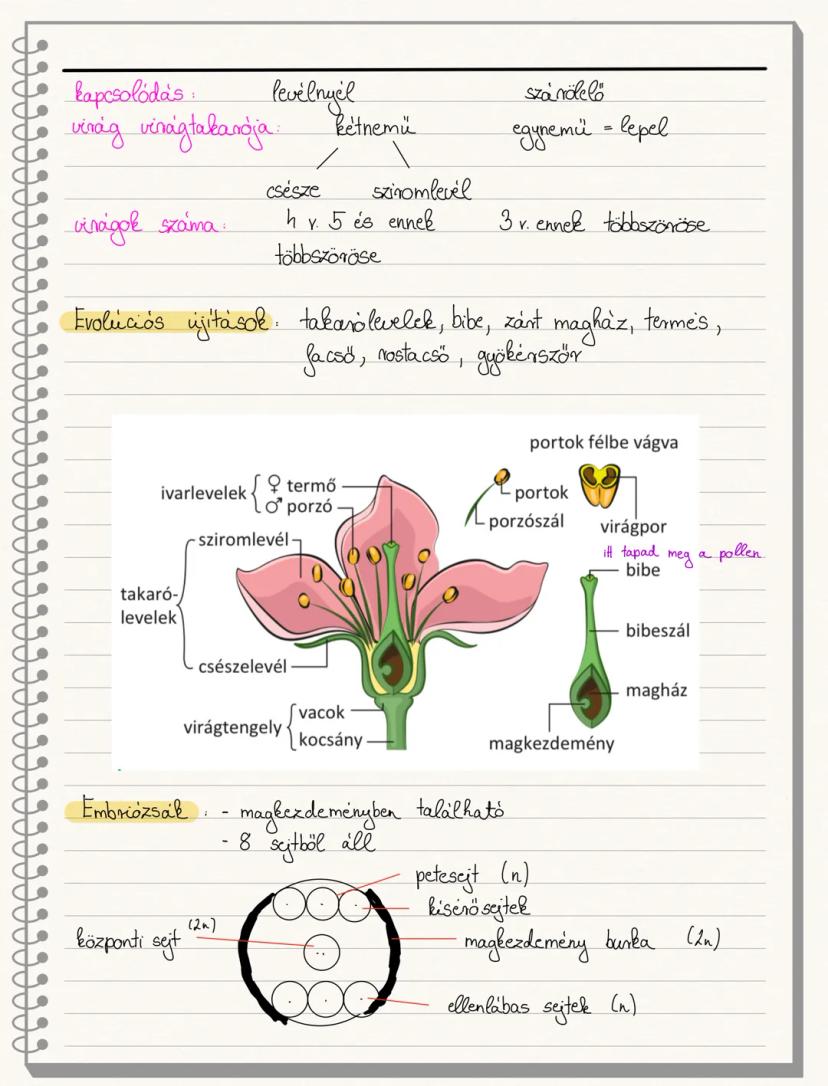 kapcsolódás: levélnyél szárölelő
virág virágtakarója: kétnemű egynemű = lepel
csésze sziromlevél
virágok száma: 4 v. 5 és ennek 3 v. ennek többszöröse
többszöröse
Evolúciós újítások: takarólevelek, bibe, zárt magház, termés,
facső, rostacső, gyökérszőr
portok félbe vágva
ivarlevelek { ♀ termő
♂ porzó
portok
porzószál
virágpor
itt tapad meg a pollen
sziromlevél
bibe
takaró-
levelek
bibeszál
csészelevél
magház
virágtengely { vacok
kocsány
magkezdemény
Embriózsák: - magkezdeményben található
- 8 sejtből áll
petesejt (n)
kísérősejtek
központi sejt (2n)
magkezdemény burka (2n)
ellenlábas sejtek (n)